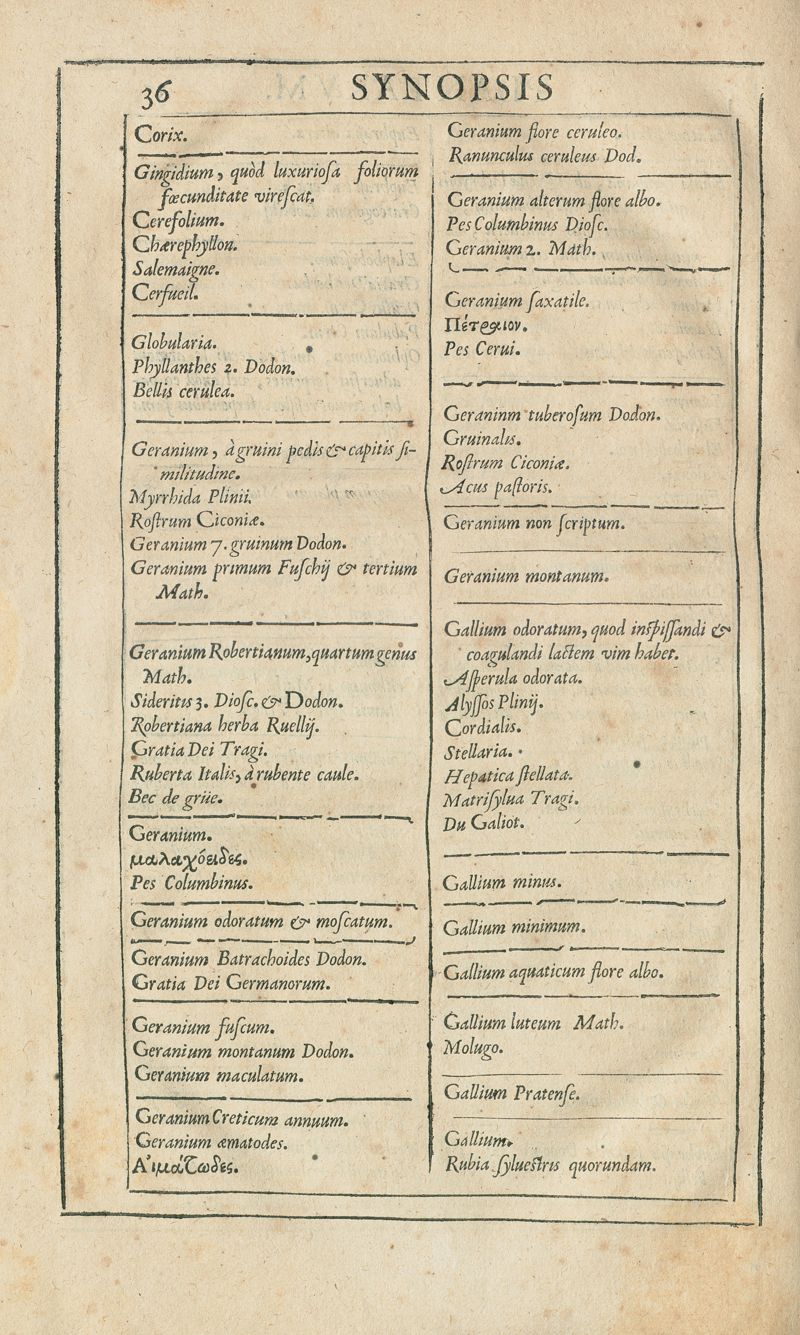 36
SYNOPSIS
Corix.
Gingidium, quòd luxuriosa foliorum
fœcunditate virescat.
Cerefolium.
Chærephyllon.
Salemaigne.
Cerfueil.
Globularia.
Phyllanthes 2. Dodon.
Bellis cerulea.
Geranium, à gruini pedis & capitis si-
militudine.
Myrrhida Plinii.
Rostrum Ciconiæ.
Geranium 7. gruinum Dodon.
Geranium primum Fuschij & tertium
Math.
Geranium Robertianum, quartum genus
Math.
Sideritis 3. Diosc. & Dodon.
Robertiana herba Ruellij.
Gratia Dei Tragi.
Ruberta Italis, à rubente caule.
Bec de grüe.
Geranium.
μαλαχόειδες.
Pes Columbinus.
Geranium odoratum & moscatum.
Geranium Batrachoides Dodon.
Gratia Dei Germanorum.
Geranium fuscum.
Geranium montanum Dodon.
Geranium maculatum.
Geranium Creticum annuum.
Geranium æmatodes.
Αἱματώδες.
Geranium flore ceruleo.
Ranunculus ceruleus Dod.
Geranium alterum flore albo.
Pes Columbinus Diosc.
Geranium 2. Math.
Geranium saxatile.
Πέτραιον.
Pes Cerui.
Geraninm tuberosum Dodon.
Gruinalis.
Rostrum Ciconiæ.
Acus pastoris.
Geranium non scriptum.
Geranium montanum.
Gallium odoratum, quod inspissandi &
coagulandi lactem vim habet.
Asperula odorata.
Alyssos Plinij.
Cordialis.
Stellaria.
Hepatica stellata.
Matrisylua Tragi.
Du Galiot.
Gallium minus.
Gallium minimum.
Gallium aquaticum flore albo.
Gallium luteum Math.
Molugo.
Gallium Pratense.
Gallium.
Rubia syluestris quorundam.